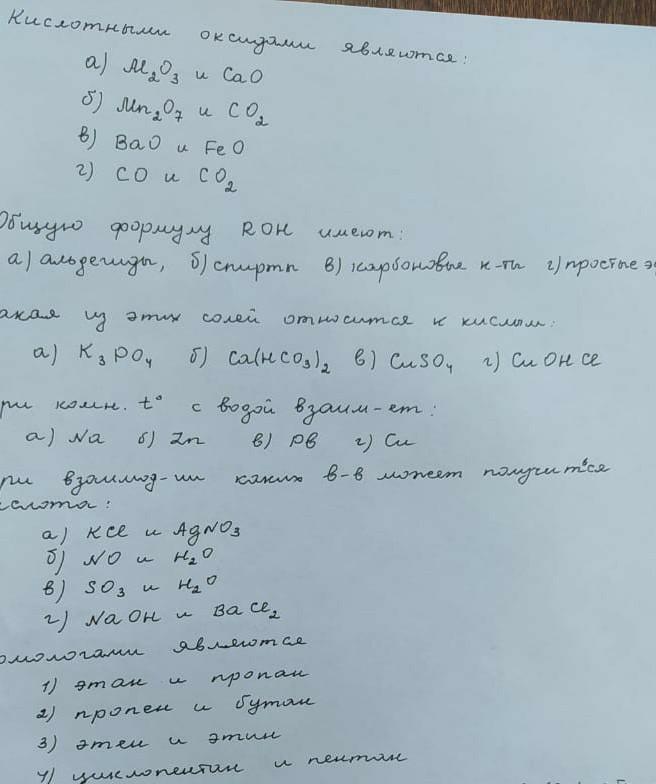 Кислотными оксидами являются:
а) Al₂O₃ и CaO
б) Mn₂O₇ и CO₂
в) BaO и FeO
г) CO и CO₂
Общую формулу ROH имеют:
а) альдегиды, б) спирты в) карбоновые к-ты г) простые э
акая из этих солей относится к кислым:
а) K₃PO₄ б) Ca(HCO₃)₂ в) CuSO₄ г) CuOHCl
ри комн. t° с водой взаим-ет:
а) Na б) Zn в) Pb г) Cu
ри взаимод-ии каких в-в может получиться
слота:
а) KCl и AgNO₃
б) NO и H₂O
в) SO₃ и H₂O
г) NaOH и BaCl₂
омологами являются
1) этан и пропан
2) пропен и бутан
3) этен и этин
4) циклопентан и пентан